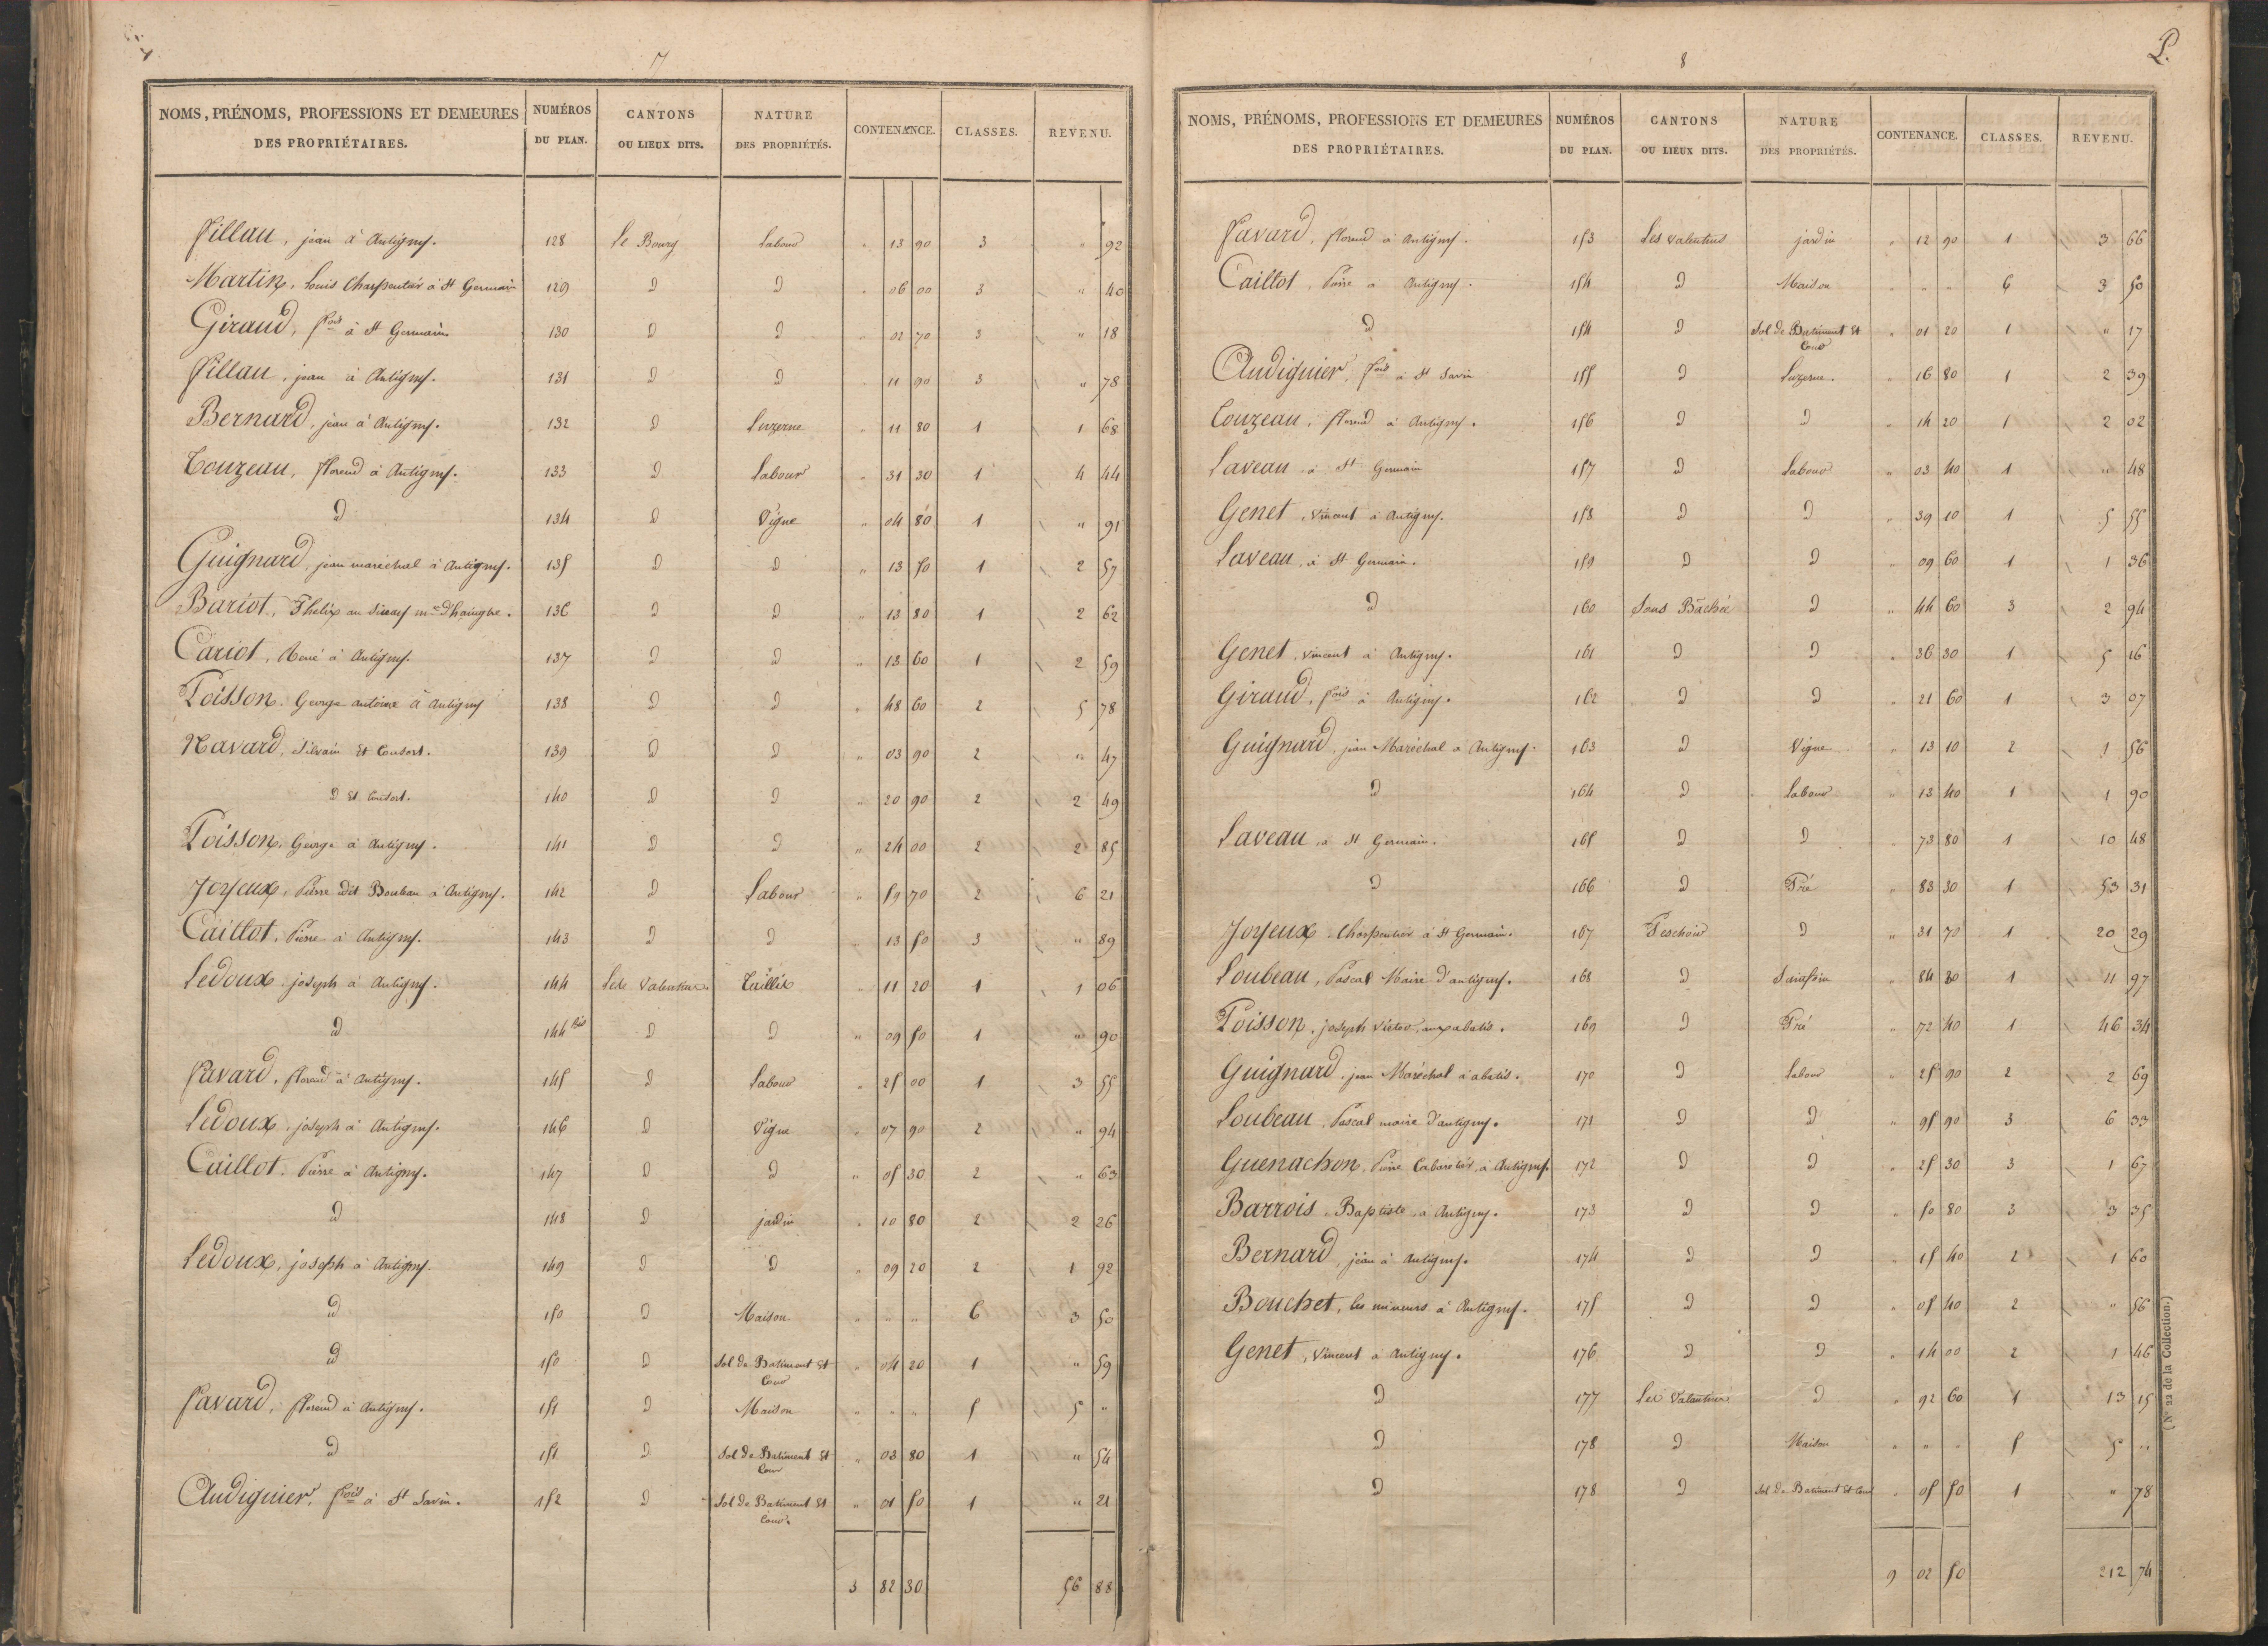 7
NOMS, PRÉNOMS, PROFESSIONS ET DEMEURES DES PROPRIÉTAIRES. NUMÉROS DU PLAN. CANTONS OU LIEUX DITS. NATURE DES PROPRIÉTÉS. CONTENANCE. CLASSES. REVENU.
fillau, jean à Antigny. 128 Le Bourg labour " 13 90 3 " 92
Martin, Louis Charpentier à St Germain 129 D D " 06 00 3 " 40
Giraud, fois à St Germain 130 D D " 02 70 3 " 18
fillau, jean à Antigny. 131 D D " 11 90 3 " 78
Bernard, jean à Antigny. 132 D Luzerne " 11 80 1 1 68
Touzeau, florend à Antigny. 133 D Labour " 31 30 1 4 44
D 134 D Vigne " 04 80 1 " 91
Guignard, jean maréchal à Antigny. 135 D D " 13 50 1 2 57
Bariot, Thelix 136 D D " 13 80 1 2 62
Cariot, René à Antigny. 137 D D " 13 60 1 2 59
Poisson. George antoine à antigny 138 D D " 48 60 2 5 78
Navard, Silvain et Consort. 139 D D " 03 90 2 " 47
D et Consort. 140 D D " 20 90 2 2 49
Poisson, George à Antigny. 141 D D " 24 00 2 2 85
Joyeux, Pierre dit Bouleau à Antigny. 142 D Labour " 59 70 2 6 21
Caillot, Pierre à Antigny. 143 D D " 13 50 3 " 89
Ledoux, joseph à Antigny. 144 Les Valentins Taillis " 11 20 1 1 06
D 144 bis D D " 09 50 1 " 90
favard, florend à Antigny. 145 D Labour " 25 00 1 3 55
Ledoux, joseph à Antigny. 146 D Vigne " 07 90 2 " 94
Caillot. Pierre à Antigny. 147 D D " 05 30 2 " 63
D 148 D jardin " 10 80 2 2 26
Ledoux, joseph à Antigny. 149 D D " 09 20 2 1 92
D 150 D Maison " " " 6 3 50
D 150 D Sol de Batiment et Cour " 04 20 1 " 59
favard, florend à Antigny. 151 D Maison " " " 5 5 "
D 151 D Sol de Batiment et Cour " 03 80 1 " 54
Audiguier, fois à St Savin. 152 D Sol de Batiment et Cour. " 01 50 1 " 21
3 82 30 56 88
8
NOMS, PRÉNOMS, PROFESSIONS ET DEMEURES DES PROPRIÉTAIRES. NUMÉROS DU PLAN. CANTONS OU LIEUX DITS. NATURE DES PROPRIÉTÉS. CONTENANCE. CLASSES. REVENU.
favard, florend à Antigny. 153 Les Valentins jardin " 12 90 1 3 66
Caillot, Pierre à Antigny. 154 D Maison " " " 6 3 50
D 154 D Sol de Batiment et Cour " 01 20 1 " 17
Audiguier, fois à St Savin 155 D Luzerne. " 16 80 1 2 39
Touzeau, florend à Antigny. 156 D D " 14 20 1 2 02
Laveau à St Germain 157 D Labour " 03 40 1 " 48
Genet, Vincent à Antigny. 158 D D " 39 10 1 5 55
Laveau, à St Germain. 159 D D " 09 60 1 1 36
D 160 Sous Bachée D " 44 60 3 2 94
Genet, Vincent à Antigny. 161 D D " 36 30 1 5 16
Giraud, fois à Antigny. 162 D D " 21 60 1 3 07
Guignard, jean Maréchal à Antigny. 163 D Vigne " 13 10 2 1 56
D 164 D Labour " 13 40 1 1 90
Laveau, à St Germain. 165 D D " 73 80 1 10 48
D 166 D Pré " 83 30 1 53 31
Joyeux Charpentier à St Germain. 167 Peschoir D " 31 70 1 20 29
Loubeau, Pascal Maire d'antigny. 168 D Sainfoin " 84 30 1 11 97
Poisson, joseph Victor, aux abatis. 169 D Pré " 72 40 1 46 34
Guignard, jean Maréchal à abatis. 170 D Labour " 25 90 2 2 69
Loubeau, Pascal maire d'antigny. 171 D D " 95 90 3 6 33
Guenachon, Pierre Cabaretier, à Antigny. 172 D D " 25 30 3 1 67
Barrois, Baptiste, à Antigny. 173 D D " 50 80 3 3 35
Bernard, jean à Antigny. 174 D D " 15 40 2 1 60
Bouchet, les mineurs à Antigny. 175 D D " 05 40 2 " 56
Genet, Vincent à Antigny. 176 D D " 14 00 2 1 46
D 177 Les Valentins D " 92 60 1 13 15
D 178 D Maison " " " 5 5 "
D 178 D Sol de Batiment et Cour " 05 50 1 " 78
9 02 50 212 74
(N° 22 de la Collection.)